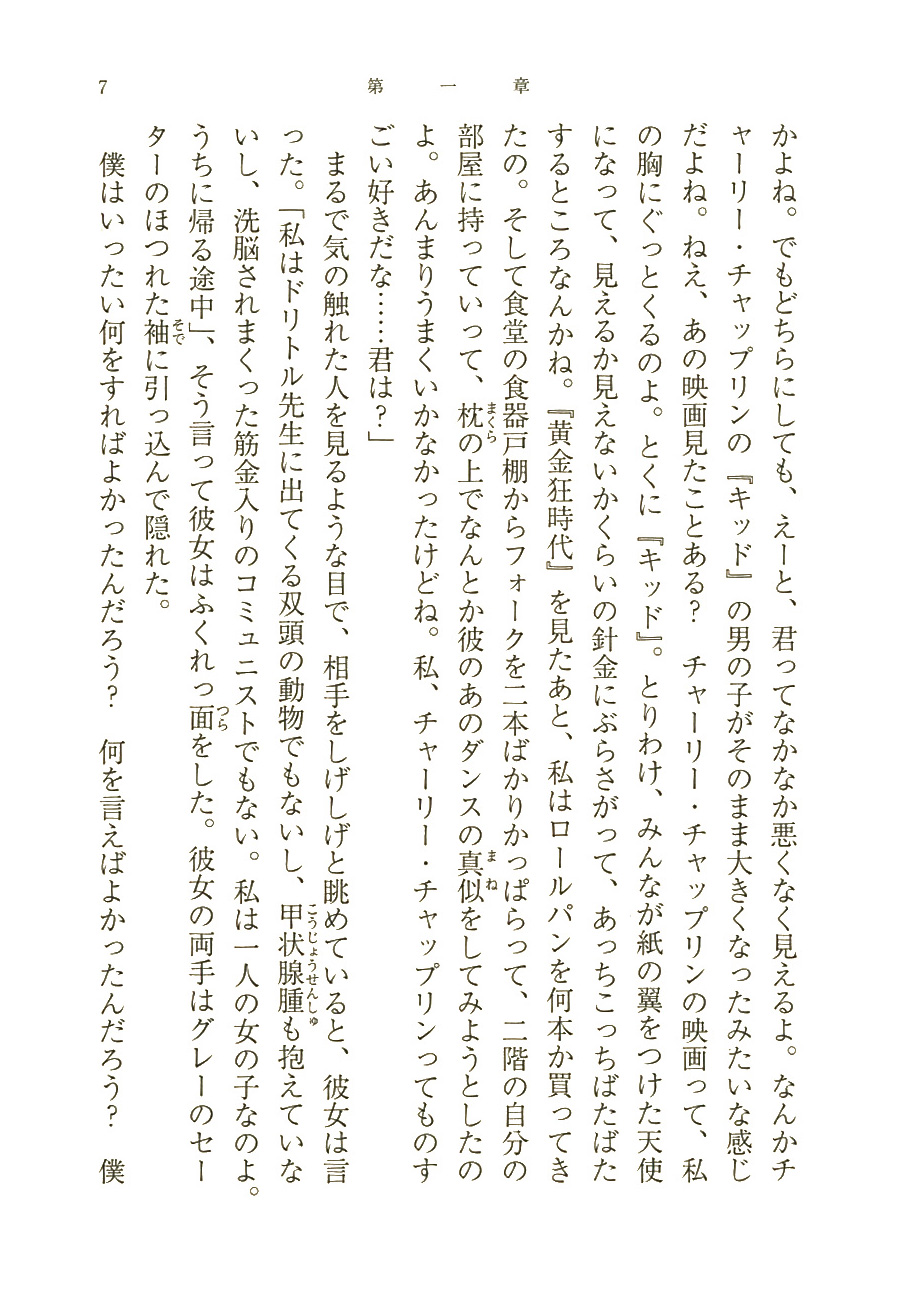 第一章
7
かよね。でもどちらにしても、えーと、君ってなかなか悪くなく見えるよ。なんかチ
ャーリー・チャップリンの『キッド』の男の子がそのまま大きくなったみたいな感じ
だよね。ねえ、あの映画見たことある?　チャーリー・チャップリンの映画って、私
の胸にぐっとくるのよ。とくに『キッド』。とりわけ、みんなが紙の翼をつけた天使
になって、見えるか見えないかくらいの針金にぶらさがって、あっちこっちばたばた
するところなんかね。『黄金狂時代』を見たあと、私はロールパンを何本か買ってき
たの。そして食堂の食器戸棚からフォークを二本ばかりかっぱらって、二階の自分の
部屋に持っていって、枕まくらの上でなんとか彼のあのダンスの真似まねをしてみようとしたの
よ。あんまりうまくいかなかったけどね。私、チャーリー・チャップリンってものす
ごい好きだな……君は?」
まるで気の触れた人を見るような目で、相手をしげしげと眺めていると、彼女は言
った。「私はドリトル先生に出てくる双頭の動物でもないし、甲状腺腫こうじょうせんしゅも抱えていな
いし、洗脳されまくった筋金入りのコミュニストでもない。私は一人の女の子なのよ。
うちに帰る途中」、そう言って彼女はふくれっ面つらをした。彼女の両手はグレーのセー
ターのほつれた袖そでに引っ込んで隠れた。
僕はいったい何をすればよかったんだろう?　何を言えばよかったんだろう?　僕